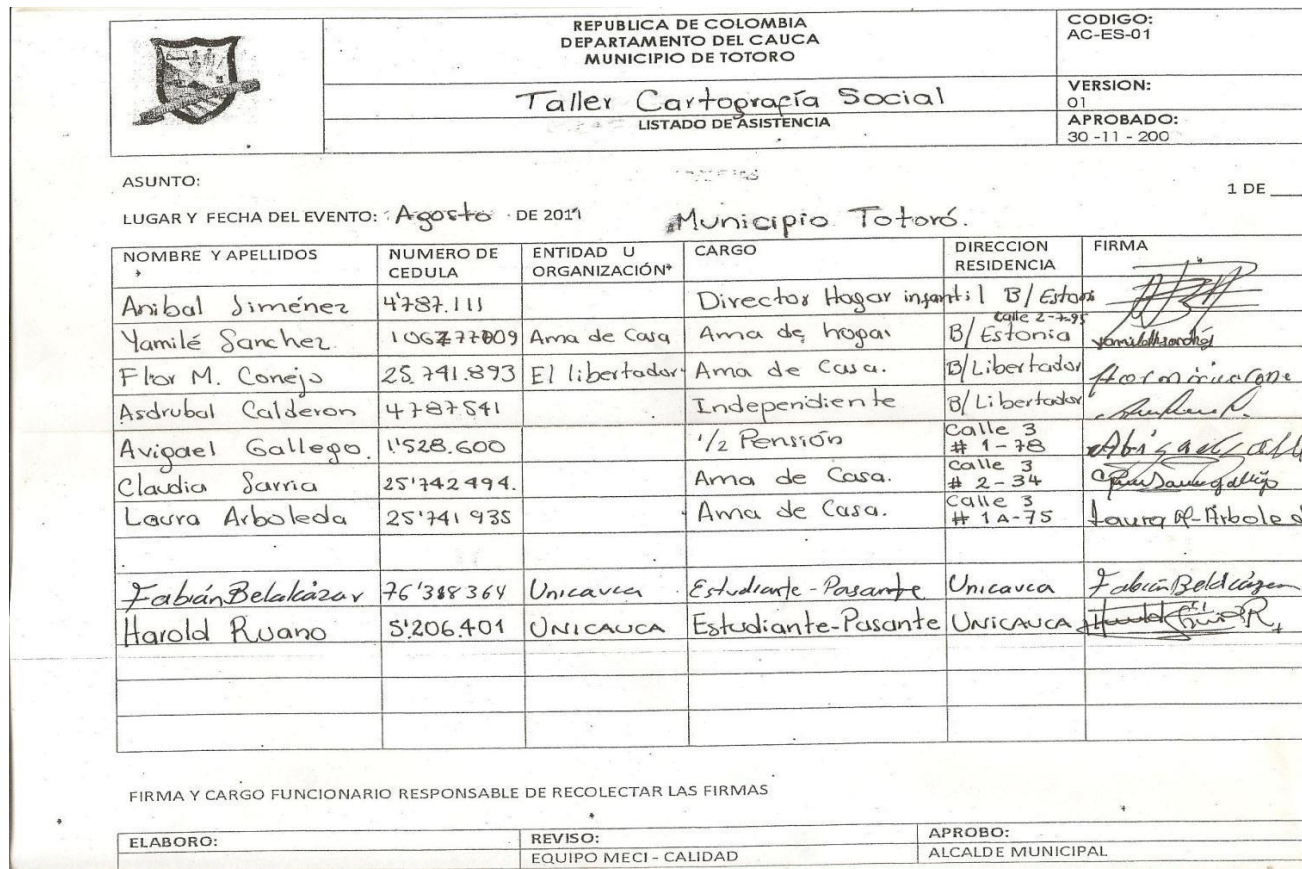 REPUBLICA DE COLOMBIA
DEPARTAMENTO DEL CAUCA
MUNICIPIO DE TOTORO
Taller Cartografía Social
LISTADO DE ASISTENCIA
CODIGO:
AC-ES-01
VERSION:
01
APROBADO:
30 -11 - 200
ASUNTO:
1 DE ___
LUGAR Y FECHA DEL EVENTO: Agosto DE 2011 Municipio Totoró.
NOMBRE Y APELLIDOS NUMERO DE CEDULA ENTIDAD U ORGANIZACIÓN CARGO DIRECCION RESIDENCIA FIRMA
Anibal Jiménez 4'787.111 Director Hogar infantil B/ Estoni
Yamilé Sanchez Ama de Casa Ama de hogar B/ Estonia Calle 2-7-95
Flor M. Conejo 25.741.893 El libertador Ama de Casa. B/Libertador
Asdrubal Calderon 4787541 Independiente B/ Libertador
Avigael Gallego. 1'528.600 1/2 Pensión Calle 3 # 1-78
Claudia Sarria 25'742494. Ama de Casa. Calle 3 # 2-34
Laura Arboleda 25'741 935 Ama de Casa. Calle 3 # 1A-75 Laura
Fabián Belalcázar Unicauca Estudiante-Pasante Unicauca Fabián Belalcázar
Harold Ruano 5'206.401 UNICAUCA Estudiante-Pasante UNICAUCA
FIRMA Y CARGO FUNCIONARIO RESPONSABLE DE RECOLECTAR LAS FIRMAS
ELABORO: REVISO: APROBO:
EQUIPO MECI - CALIDAD ALCALDE MUNICIPAL